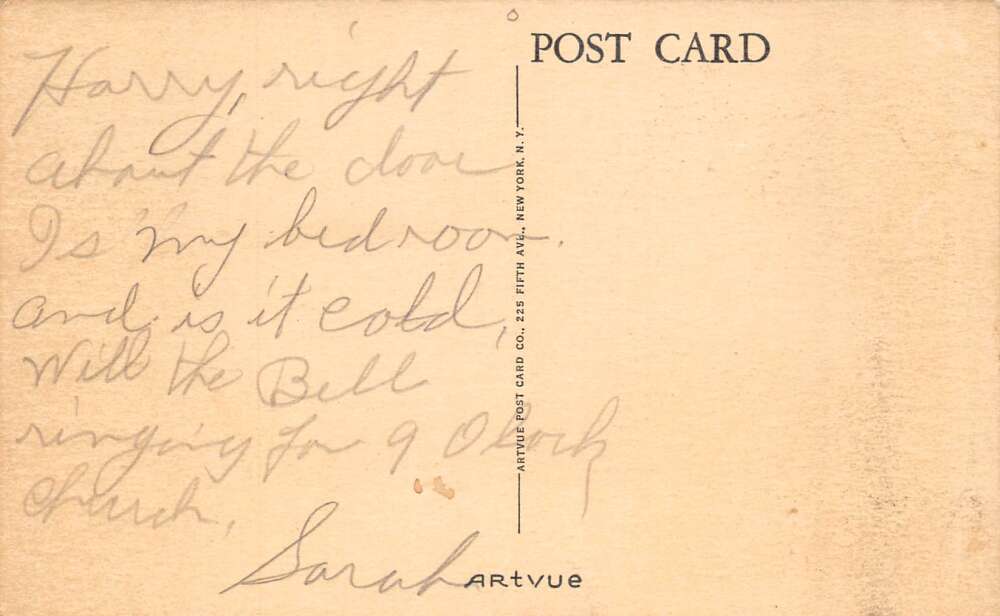 POST CARD
Harry, right
about the door
Is my bedroom.
and is it cold,
Will the Bell
ringing for 9 Oclock
Church,
Sarah
ARTVUE POST CARD CO., 225 FIFTH AVE., NEW YORK, N. Y.
ARtVUE